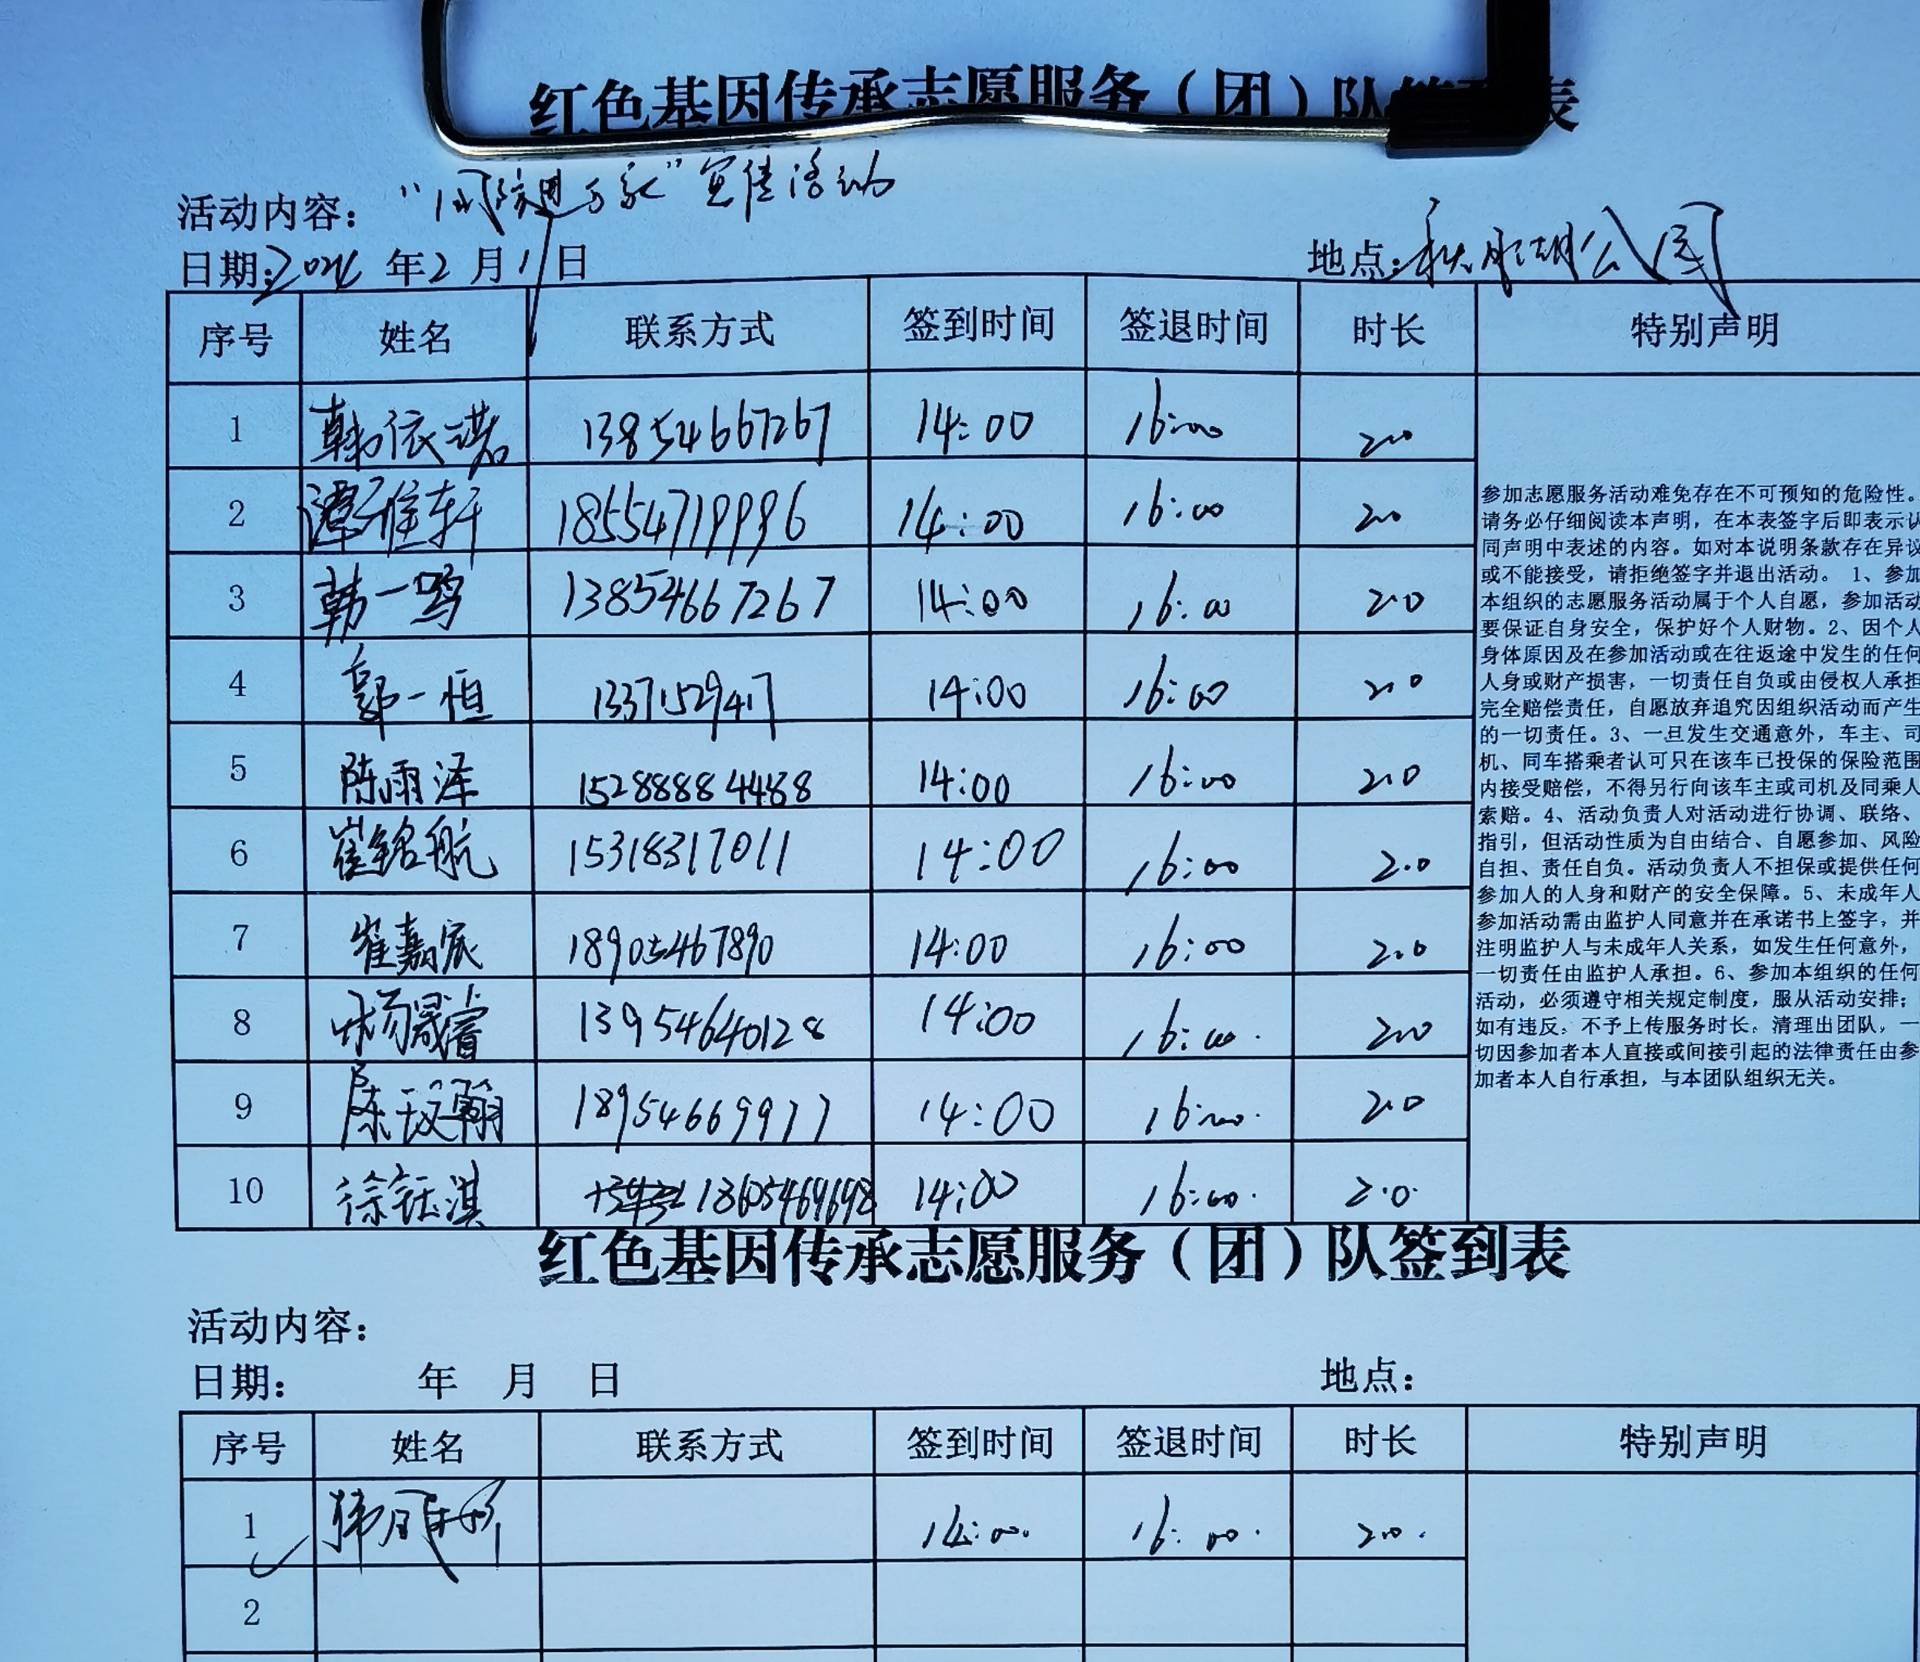 红色基因传承志愿服务（团）队签到表
活动内容： 宣传活动
日期：2024年2月1日 地点： 公园
序号 姓名 联系方式 签到时间 签退时间 时长 特别声明
1 韩依诺 13854667267 14:00 16:00 2.0
2 谭雅轩 18554719996 14:00 16:00 2.0
3 韩一鸣 13854667267 14:00 16:00 2.0
4 郭一恒 1337529417 14:00 16:00 2.0
5 陈雨泽 15288884488 14:00 16:00 2.0
6 崔铭航 15318317011 14:00 16:00 2.0
7 崔嘉宸 18905467890 14:00 16:00 2.0
8 杨晟睿 13954640128 14:00 16:00 2.0
9 陈玟翰 18954669977 14:00 16:00 2.0
10 徐钰淇 18605469698 14:00 16:00 2.0
参加志愿服务活动难免存在不可预知的危险性。
请务必仔细阅读本声明，在本表签字后即表示认
同声明中表述的内容。如对本说明条款存在异议
或不能接受，请拒绝签字并退出活动。 1、参加
本组织的志愿服务活动属于个人自愿，参加活动
要保证自身安全，保护好个人财物。2、因个人
身体原因及在参加活动或在往返途中发生的任何
人身或财产损害，一切责任自负或由侵权人承担
完全赔偿责任，自愿放弃追究因组织活动而产生
的一切责任。3、一旦发生交通意外，车主、司
机、同车搭乘者认可只在该车已投保的保险范围
内接受赔偿，不得另行向该车主或司机及同乘人
索赔。4、活动负责人对活动进行协调、联络、
指引，但活动性质为自由结合、自愿参加、风险
自担、责任自负。活动负责人不担保或提供任何
参加人的人身和财产的安全保障。5、未成年人
参加活动需由监护人同意并在承诺书上签字，并
注明监护人与未成年人关系，如发生任何意外，
一切责任由监护人承担。6、参加本组织的任何
活动，必须遵守相关规定制度，服从活动安排；
如有违反，不予上传服务时长，清理出团队，一
切因参加者本人直接或间接引起的法律责任由参
加者本人自行承担，与本团队组织无关。
红色基因传承志愿服务（团）队签到表
活动内容：
日期： 年 月 日 地点：
序号 姓名 联系方式 签到时间 签退时间 时长 特别声明
1 14:00 16:00 2.0
2